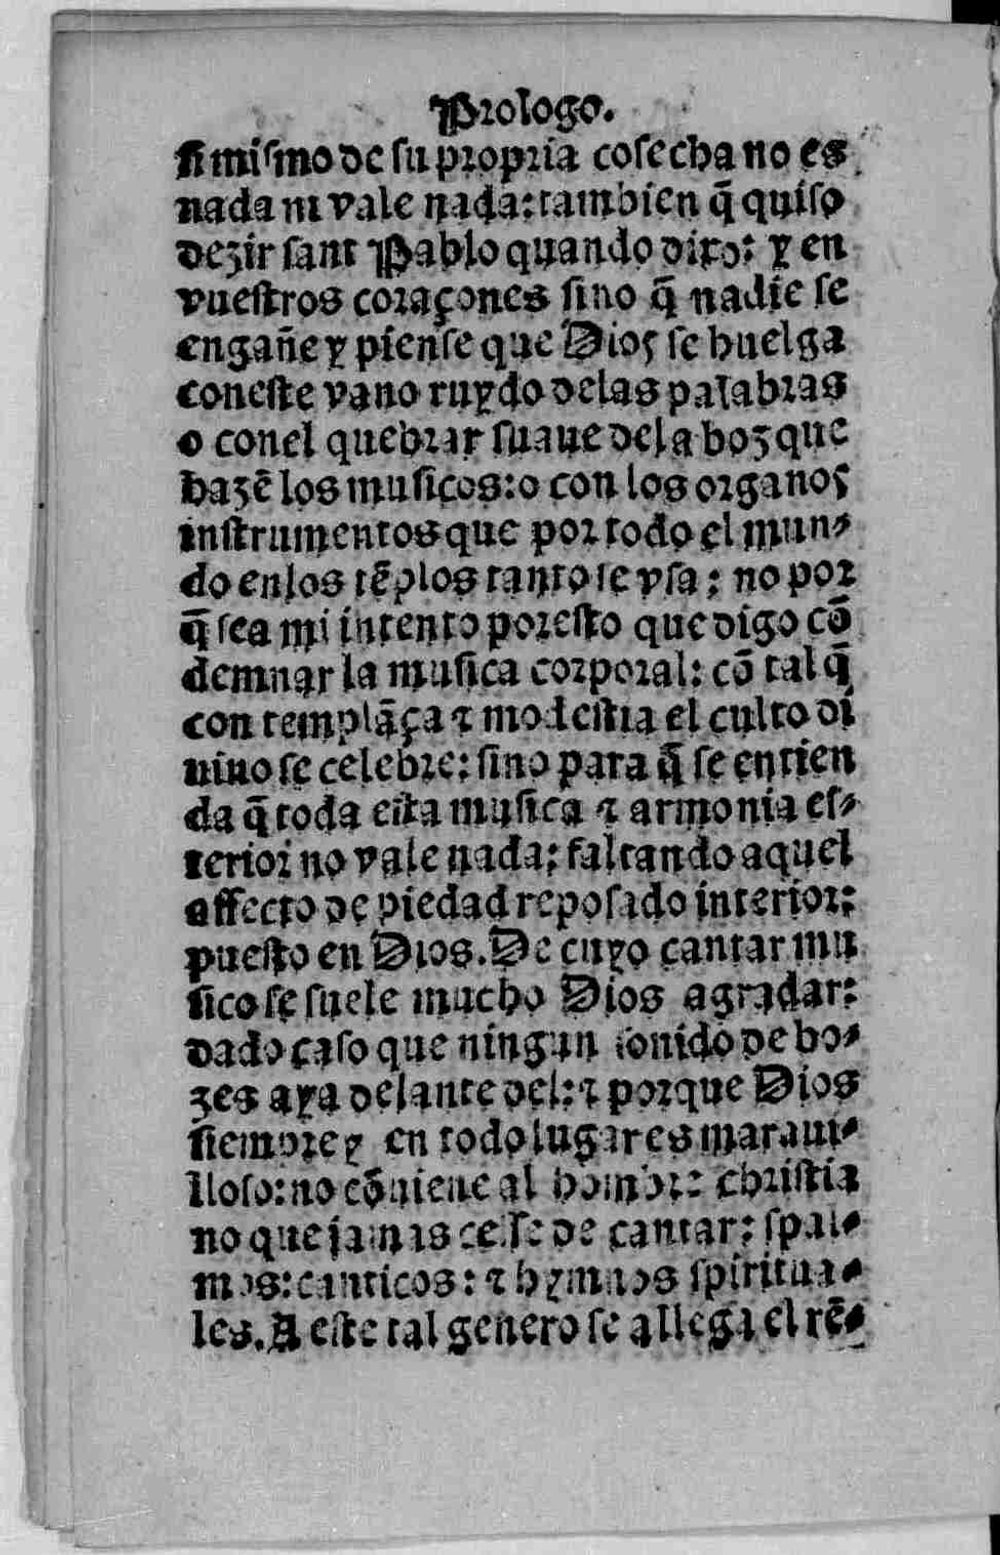 Prologo.
si mismo de su propria cosecha no es
nada ni vale nada: tambien q̃ quiso
dezir sant Pablo quando dixo: y en
vuestros coraçones sino q̃ nadie se
engañe y piense que Dios se huelga
coneste vano ruydo delas palabras
o conel quebrar suaue dela boz que
hazẽ los musicos: o con los organos
instrumentos que por todo el mun-
do enlos tẽplos tanto se vsa: no por
q̃ sea mi intento poresto que digo cõ
demnar la musica corporal: cõ tal q̃
con templãça ⁊ modestia el culto di
uino se celebre: sino para q̃ se entien
da q̃ toda esta musica ⁊ armonia es-
terior no vale nada: faltando aquel
affecto de piedad reposado interior:
puesto en Dios. De cuyo cantar mu
sico se suele mucho Dios agradar:
dado caso que ningun sonido de bo-
zes aya delante del: ⁊ porque Dios
siempre y en todo lugar es maraui-
lloso: no cõuiene al hombre christia
no que jamas cesse de cantar: spal-
mos: canticos: ⁊ hymnos spiritua-
les. A este tal genero se allega el rẽ-